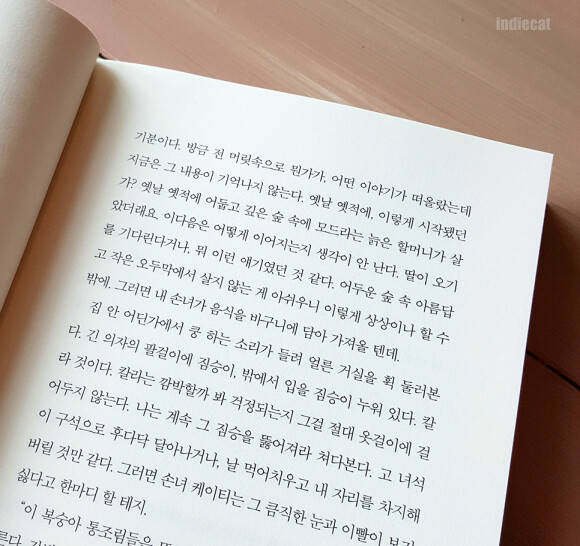 indiecat
기분이다. 방금 전 머릿속으로 뭔가가, 어떤 이야기가 떠올랐는데
지금은 그 내용이 기억나지 않는다. 옛날 옛적에, 이렇게 시작됐던
가? 옛날 옛적에 어둡고 깊은 숲 속에 모드라는 늙은 할머니가 살
았더래요. 이다음은 어떻게 이어지는지 생각이 안 난다. 딸이 오기
를 기다린다거나, 뭐 이런 얘기였던 것 같다. 어두운 숲 속 아름답
고 작은 오두막에서 살지 않는 게 아쉬우니 이렇게 상상이나 할 수
밖에. 그러면 내 손녀가 음식을 바구니에 담아 가져올 텐데.
집 안 어딘가에서 쿵 하는 소리가 들려 얼른 거실을 획 둘러본
다. 긴 의자의 팔걸이에 짐승이, 밖에서 입을 짐승이 누워 있다. 칼
라 것이다. 칼라는 깜박할까 봐 걱정되는지 그걸 절대 옷걸이에 걸
어두지 않는다. 나는 계속 그 짐승을 뚫어져라 쳐다본다. 고 녀석
이 구석으로 후다닥 달아나거나, 날 먹어치우고 내 자리를 차지해
버릴 것만 같다. 그러면 손녀 케이티는 그 큼직한 눈과 이빨이 보기
싫다고 한마디 할 테지.
“이 복숭아 통조림들은